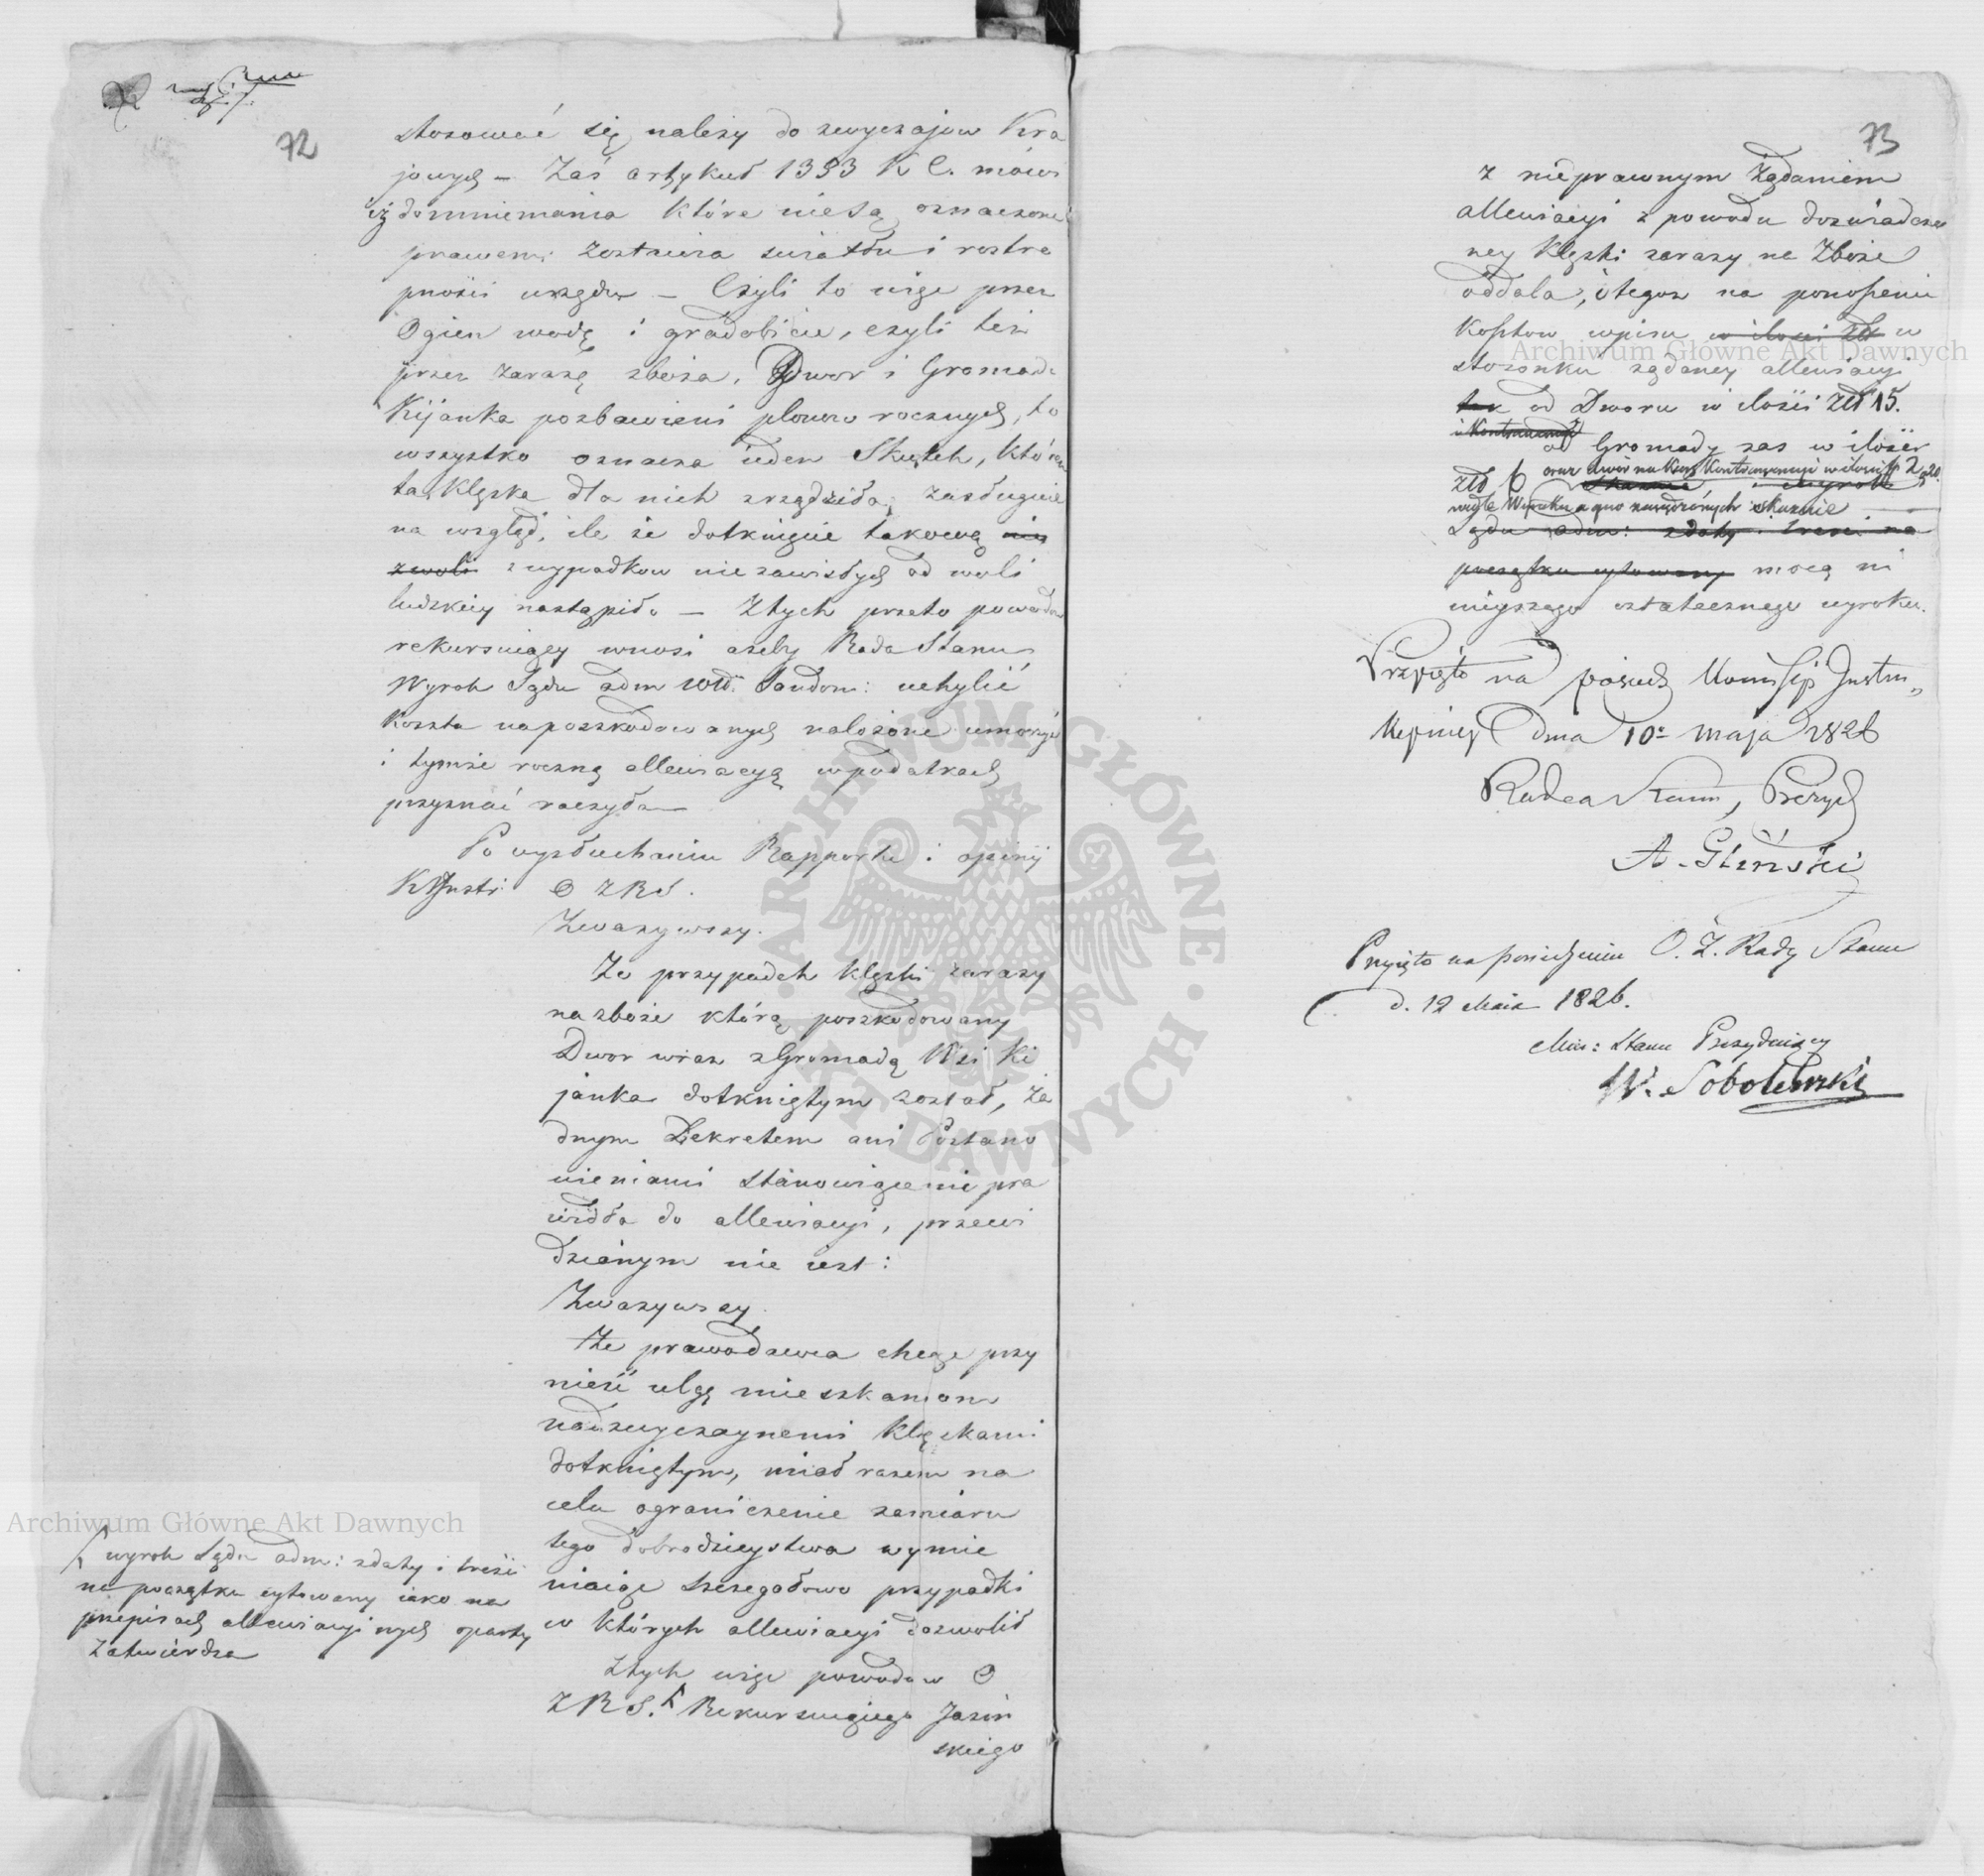 72
stosować się należy do zwyczajow Kra
jowych – Zaś artykuł 1353 K C. mówi
iż domniemania które nie są oznaczone
prawem; zostawia światłu i roztro
pności urzędu – Czyli to więc przez
Ogien wodę i gradobicie, czyli też
przez zarazę zboża, Dwor i Gromada
Kijanka pozbawieni plonow rocznych, to
wszystko oznacza ieden Skutek, która
ta klęska dla nich zrządziła, zasługuie
na wzgląd, ile że dotknięcie takową nie
zwoli z wypadkow niezawisłych od woli
ludzkiey nastąpiło – Ztych przeto powodow
rekursuiący wnosi ażeby Rada Stanu
Wyrok Sądu adm Wdz. Sandom: uchylić
koszta na poszkodowanych nalożone umorzyć
i tymże roczną allewiacyą w podatkach
przyznać raczyła
Po wysłuchaniu Rapportu i opinij
K Justi: O Z R S.
Zwazywszy.
Ze przypadek klęski zarazy
na zboże którą poszkodowany
Dwor wraz z Gromadą Wsi Ki
janka dotkniętym został, ża
dnym Dekretem ani Postano
wieniami stanowiącemi pra
widła do allewiacyi, przewi
dzianym nie iest:
Zwazywszy
Ze prawodawca chcąc przy
nieść ulgę mieszkancom
nadzwyczaynemi klęskami
dotkniętym, miał razem na
celu ograniczenie zamiaru
tego dobrodzieystwa wymie
niaiąc szczegołowo przypadki
w których allewiacyi dozwolił
Ztych więc powodow O
Z R S. Rekursuiącego Jasiń
skiego
wyrok Sądu adm: z daty i treści
na początku cytowany iako na
przepisach allewiacyinych oparty
zatwierdza
73
z nieprawnym żądaniem
allewiacyi z powodu doświadczo
ney klęski zarazy na Zboże
oddala, i tegoż na ponoszenie
kosztow wpisu w ilości złt w
stosonku żądaney allewiacyi
tak od Dworu w ilości złt 15.
i Kontrawencyi
od Gromady zas w ilości
złt 6 oraz dwór na karę Kontrawencyi w ilości 2 20.
skazuie wyrok
wedle Wyroku a quo zawiedzionych skazuie
Sądu adm: z daty i treści na
początku cytowany mocą ni
nieyszego ostatecznego wyroku.
Przyjęto na posiedz Kommissyi Instru„
kcyiney dnia 10o maja 1826
Radca Stanu, Prezyd
A. Gliński
Przyięto na posiedzeniu O. Z. Rady Stanu
d. 12 Maia 1826.
Min: Stanu Prezyduiący
W. Sobolewski
Archiwum Główne Akt Dawnych
Archiwum Główne Akt Dawnych
ARCHIWUM GŁÓWNE AKT DAWNYCH